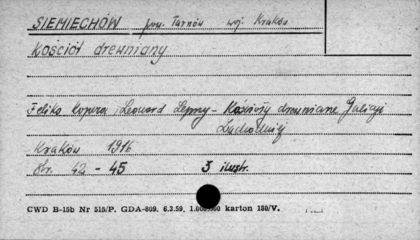 SIEMIECHÓW pow. Tarnów woj. Kraków
kościół drewniany
Feliks Kopera i Leonard Lepszy - Kościoły drewniane Galicyi
Zachodniej
Kraków 1916
Str. 42 - 45 3 ilustr.
CWD B-15b Nr 515/P. GDA-809. 6.3.59. karton 180/V.